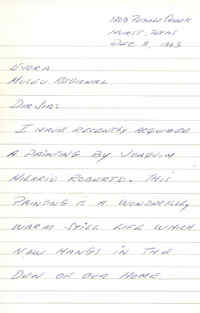 HURST, TEXAS
DEC 9, 1963
EVORA
MUSEU REGIONAL
DEAR SIR:
I HAVE RECENTLY ACQUIRED
A PAINTING BY JOAQUIM
HILARIO ROBERTO. THIS
PAINTING IS A WONDERFULLY
WARM STILL LIFE WHICH
NOW HANGS IN THE
DEN OF OUR HOME